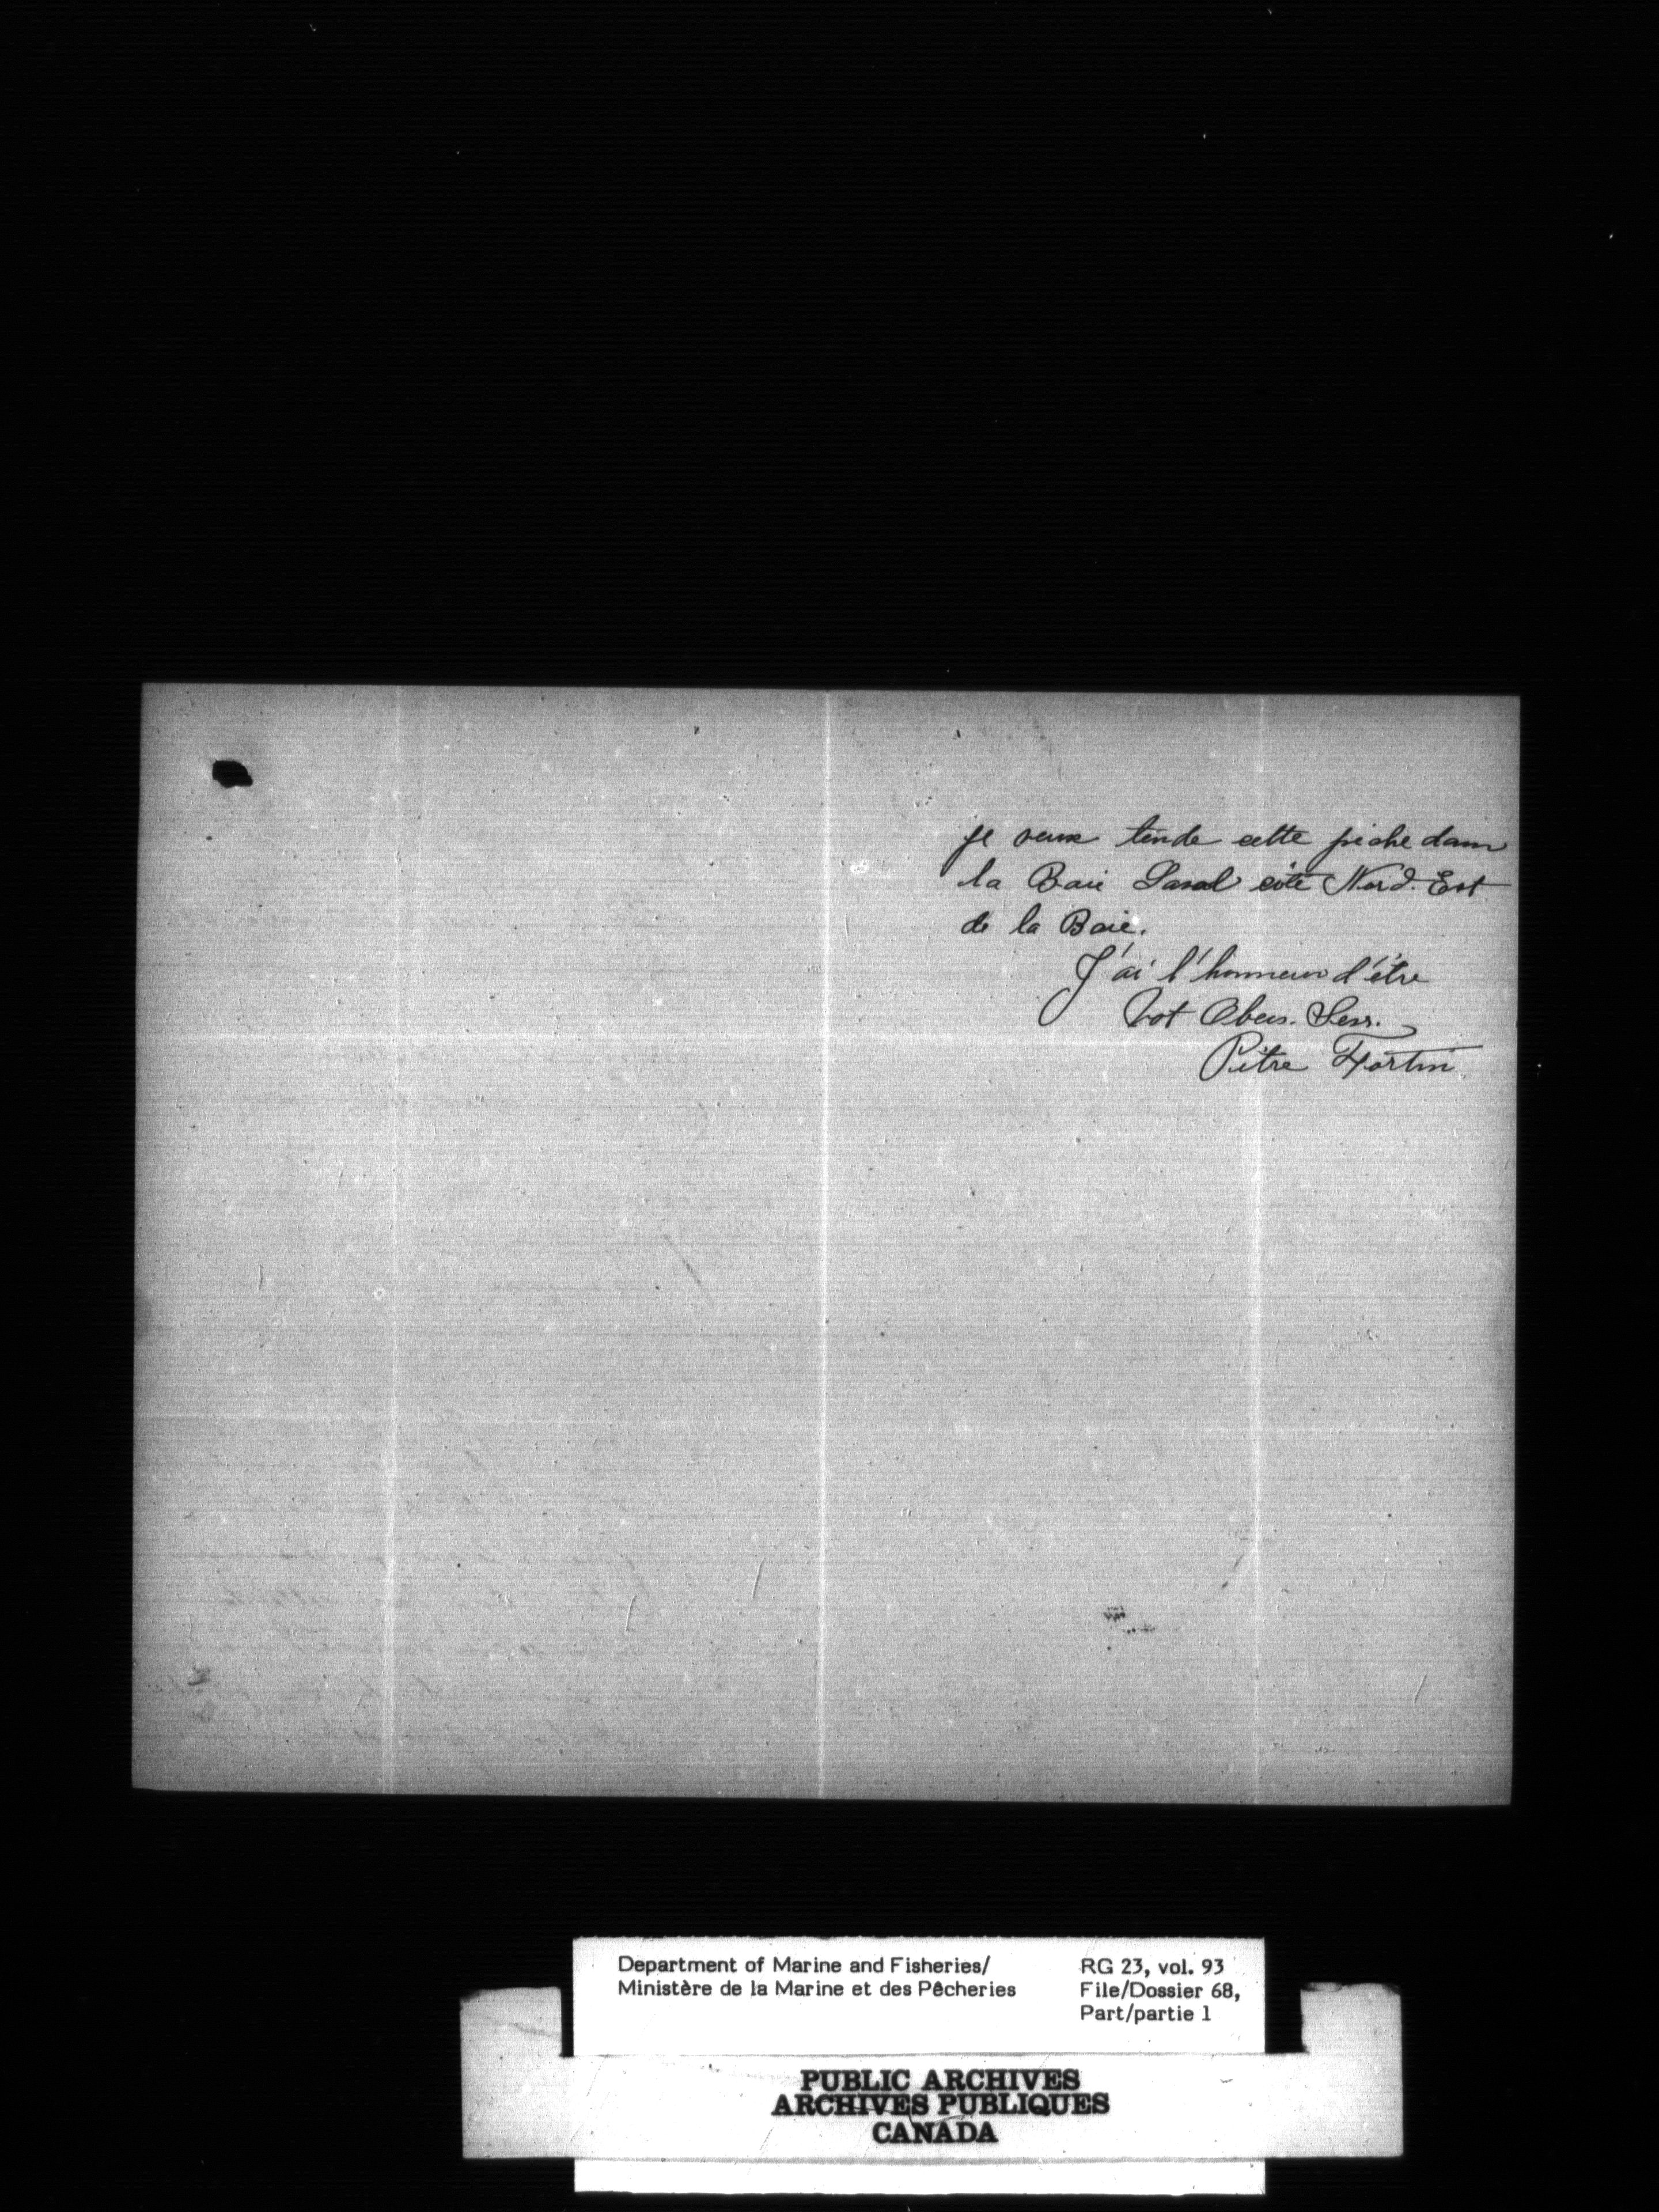 je veux tende cette pêche dans
la Baie Laval côté Nord. Est
de la Baie.
J'ai l'honneur d'être
Vot Obeis. Serr.
Pitre Fortin
Department of Marine and Fisheries/
Ministère de la Marine et des Pêcheries
RG 23, vol. 93
File/Dossier 68,
Part/partie 1
PUBLIC ARCHIVES
ARCHIVES PUBLIQUES
CANADA